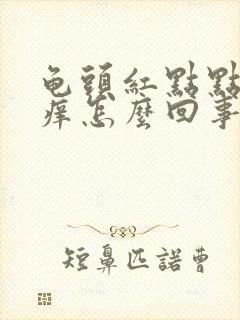 龟頭紅點點
痒怎麼回事
短鼻匹諾曹